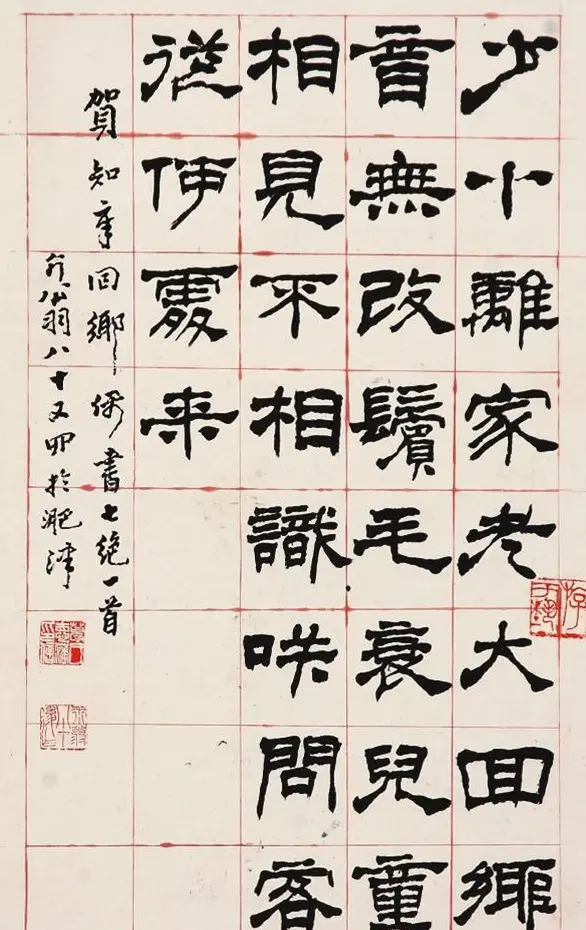 少小離家老大回鄉
音無改鬢毛衰兒童
相見不相識咲問客
從何處来
賀知章回鄉偶書七絕一首
翁八十又四於淝津